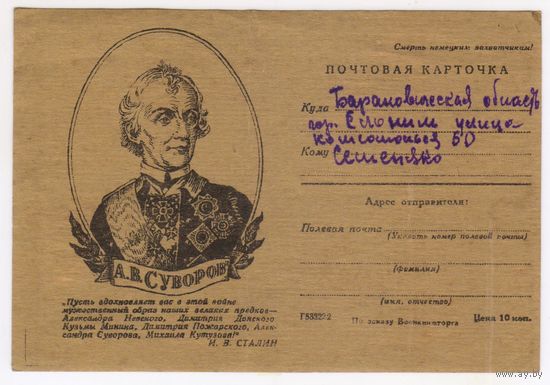 Смерть немецким захватчикам!
ПОЧТОВАЯ КАРТОЧКА
Куда Барановическая область
гор. Слоним улица
Кому Семеняко
Адрес отправителя:
Полевая почта
(Указать номер полевой почты)
(фамилия)
(имя, отчество)
Г533222 По заказу Воениздата Цена 10 коп.
А.В. СУВОРОВ
„Пусть вдохновляет вас в этой войне
мужественный образ наших великих предков—
Александра Невского, Димитрия Донского,
Кузьмы Минина, Димитрия Пожарского, Алек-
сандра Суворова, Михаила Кутузова!"
И. В. СТАЛИН
www.ay.by